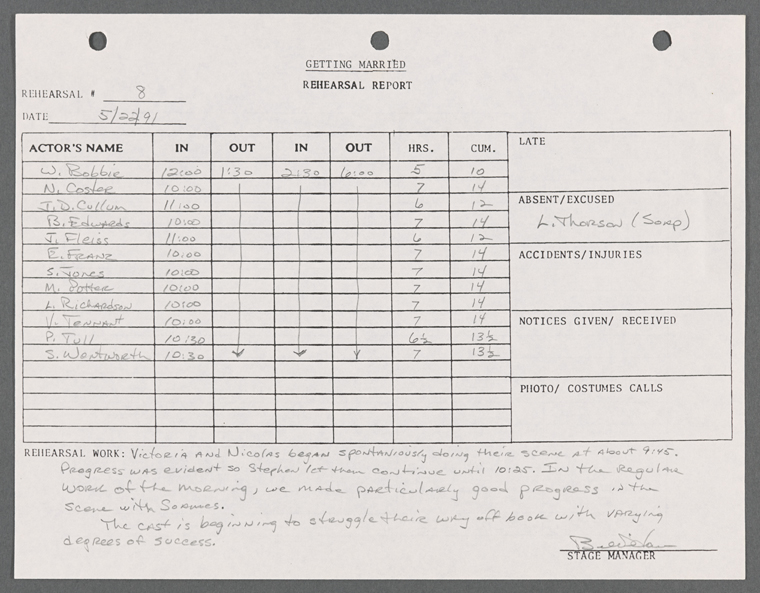 GETTING MARRIED
REHEARSAL REPORT
REHEARSAL # 8
DATE 5/22/91
ACTOR'S NAME IN OUT IN OUT HRS. CUM. LATE
W. Bobbie 12:00 1:30 2:30 6:00 5 10
N. Coster 10:00 7 14
J.D. Cullum 11:00 6 12
ABSENT/EXCUSED
B. Edwards 10:00 7 14
L. Thorson (Soap)
J. Fleiss 11:00 6 12
E. Franz 10:00 7 14
ACCIDENTS/INJURIES
S. Jones 10:00 7 14
M. Potter 10:00 7 14
L. Richardson 10:00 7 14
V. Tennant 10:00 7 14
NOTICES GIVEN/ RECEIVED
P. Tull 10:30 6½ 13½
S. Wentworth 10:30 7 13½
PHOTO/ COSTUMES CALLS
REHEARSAL WORK: Victoria and Nicolas began spontaniously doing their scene at about 9:45.
Progress was evident so Stephen let them continue until 10:25. In the regular
work of the morning, we made particularly good progress in the
scene with Soames.
The cast is beginning to struggle their way off book with varying
degrees of success.
STAGE MANAGER